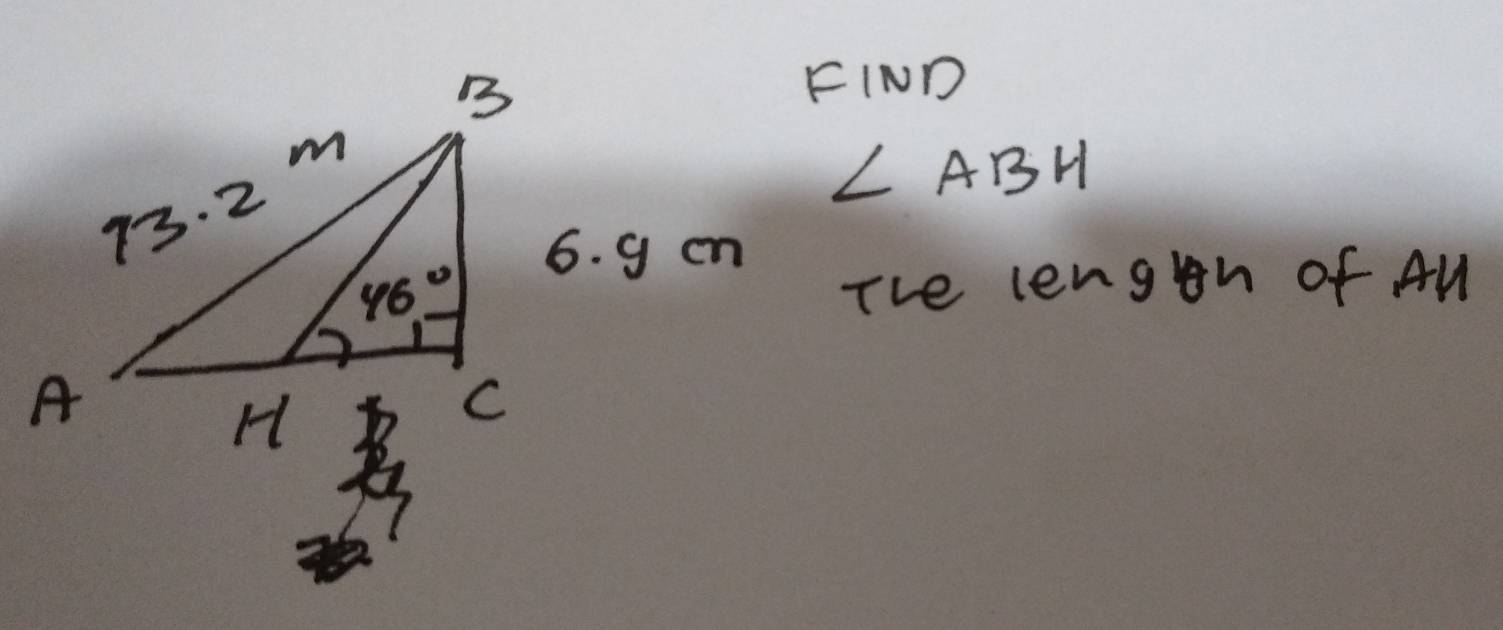 B
FIND
m
13.2
∠ ABH
6.9 cm
46°
The length of AH
A
H
C